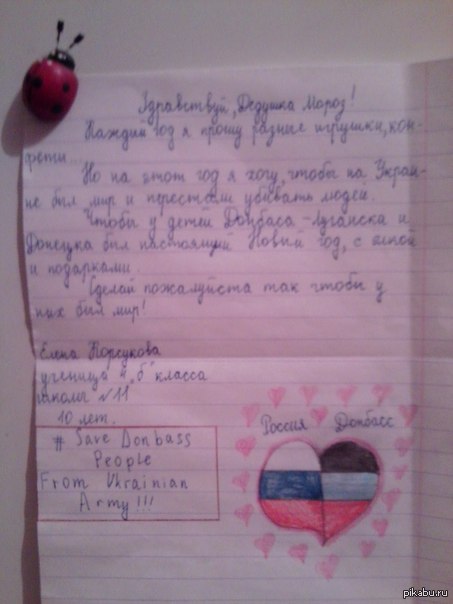 Здравствуй, Дедушка Мороз!
Каждый год я прошу разные игрушки, кон-
фети...
Но на этот год я хочу, чтобы на Украи-
не был мир и перестали убивать людей.
Чтобы у детей Донбаса - Луганска и
Донецка был настоящий Новый год, с ёлкой
и подарками.
Сделай пожалуйста так чтобы у
них был мир!
Елена Корсукова
ученица 4 "б" класса
школы №11
10 лет.
# Save Donbass
People
From Ukrainian
Army!!!
Россия Донбасс
pikabu.ru